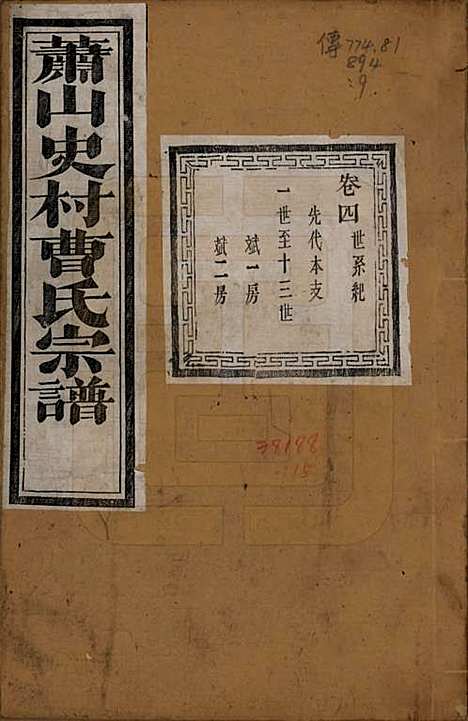 蕭山史村曹氏宗譜
卷四 世系紀
先代本支
一世至十三世
斌一房
斌二房
傳 774.81
894
:9